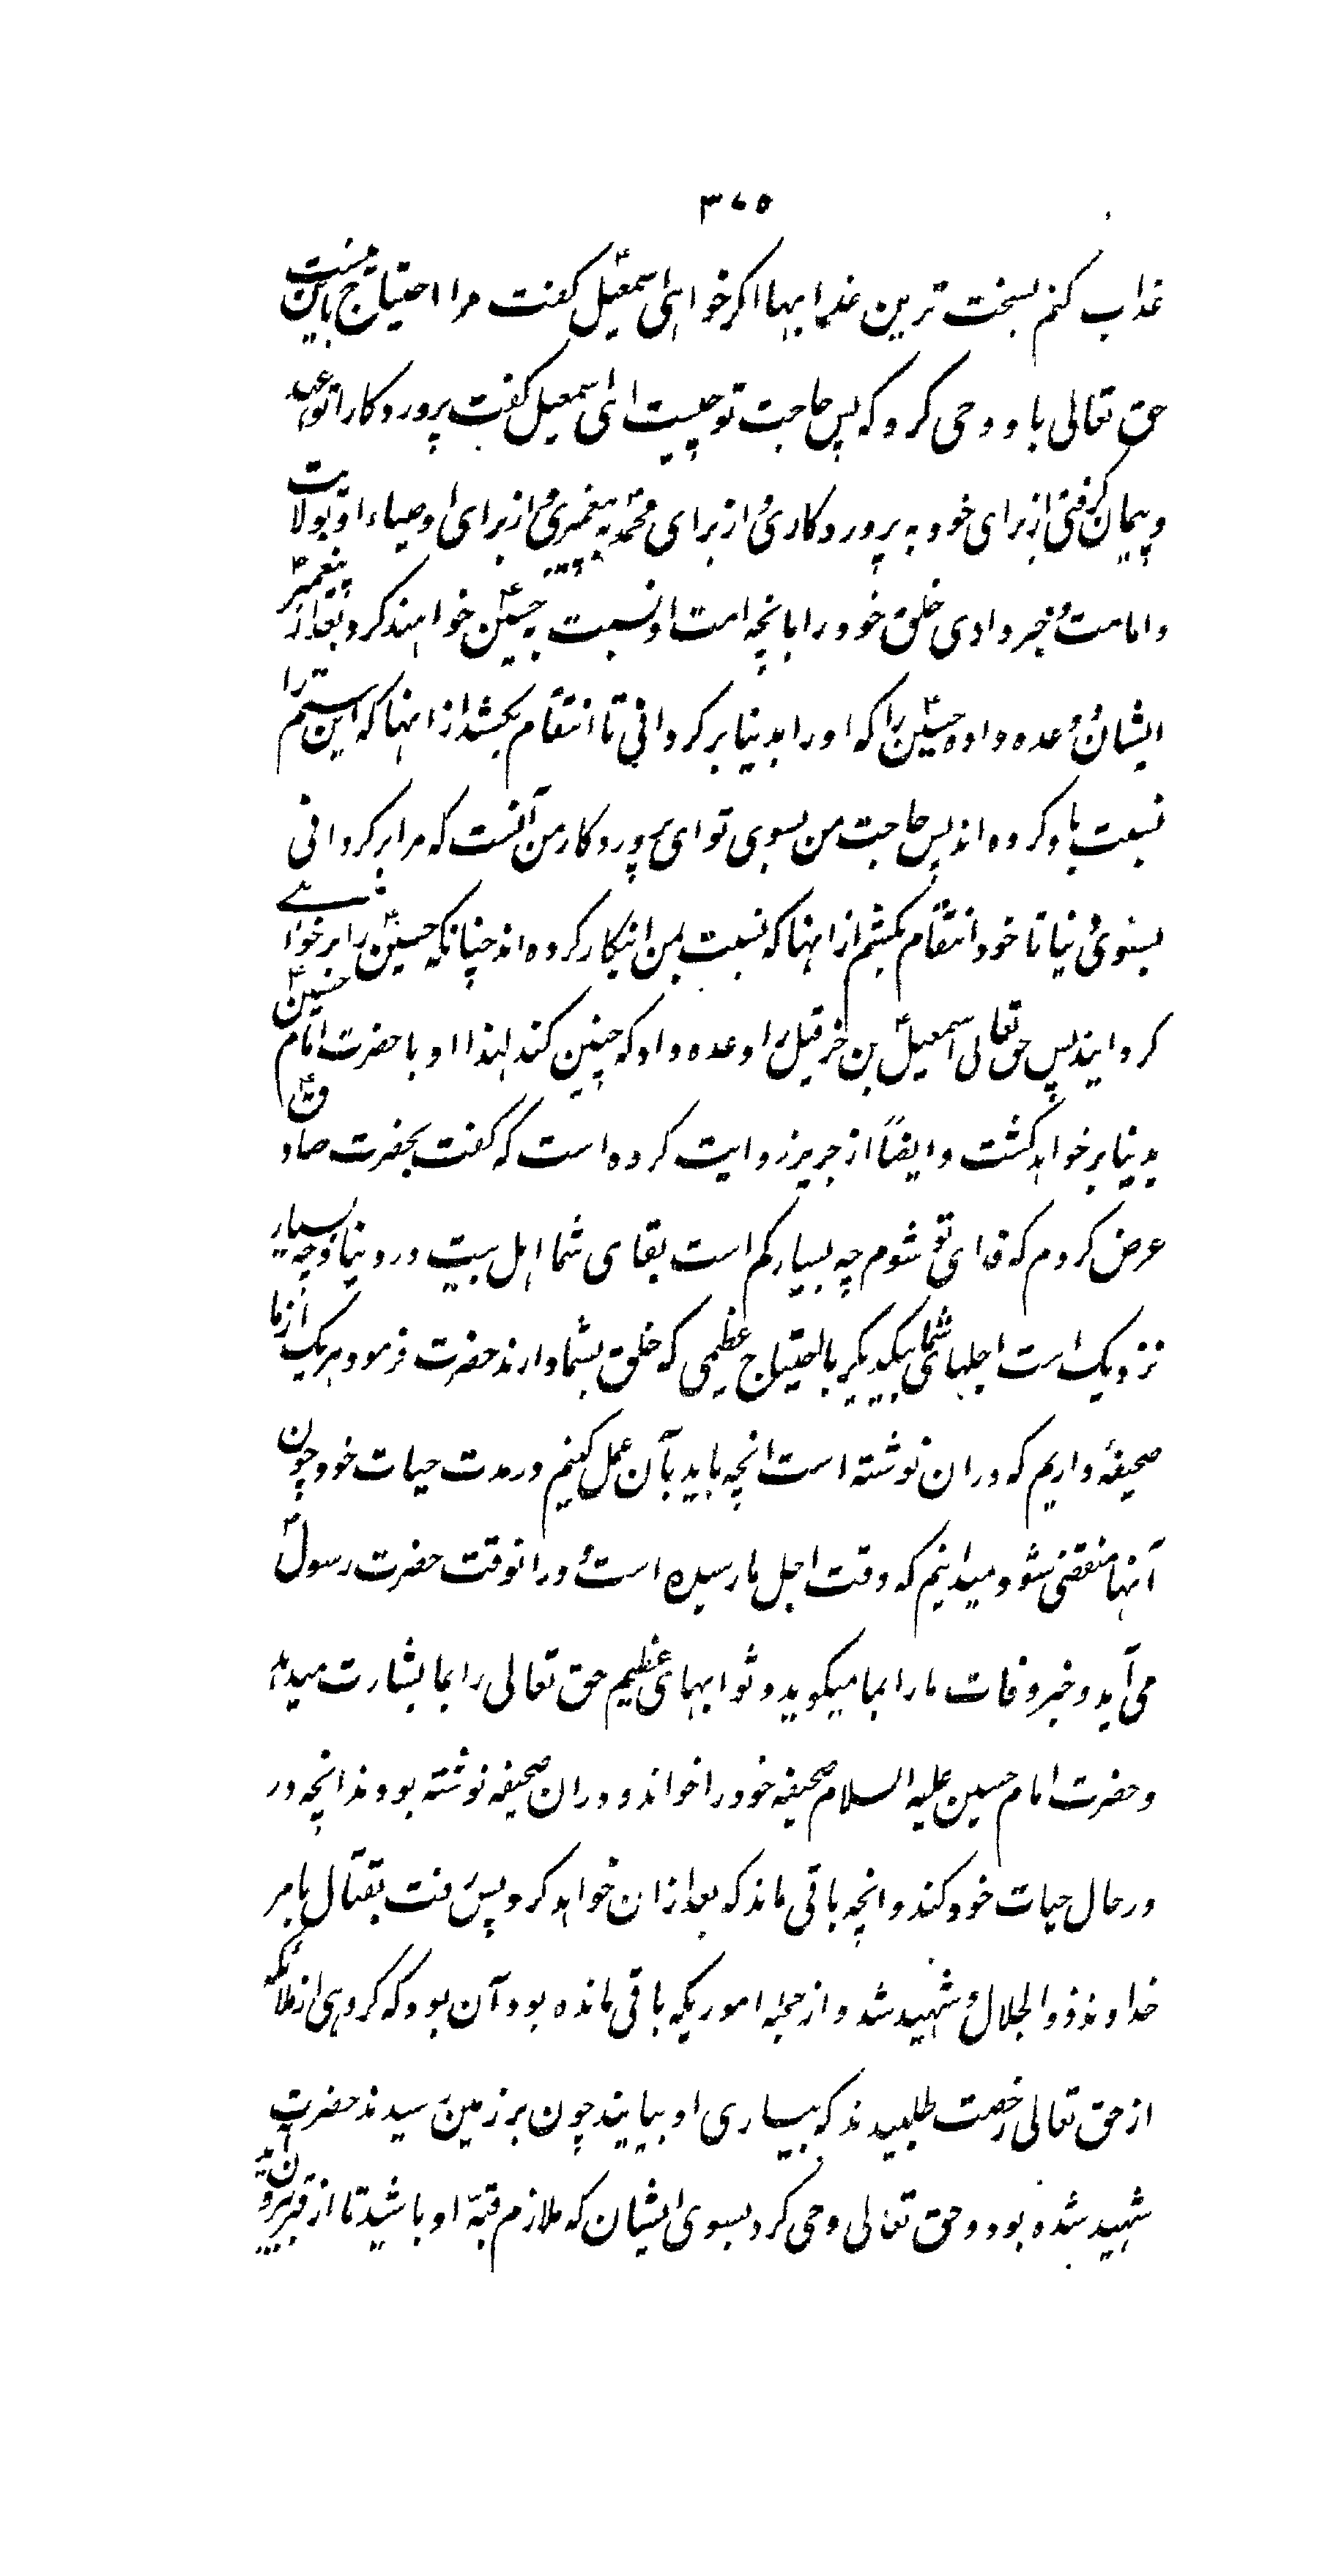 ۳۷۵
عذاب کنم بسخت ترین عذابها اکر خواهی اسمعیلؑ کفت مرا احتیاج باین نیست
حق تعالی باو وحی کرد که پس حاجت تو چیست ای اسمعیل کفت پروردکارا تو عهد
و پیمان کرفتی از برای خود به پروردکاری و از برای محمدؐ به پیغمبری و از برای اوصیاء او بولایت
و امامت و خبر دادی خلق خود را بانچه امت او نسبت به حسینؑ خواهند کرد بعد از پیغمبرؐ
ایشان و وعده داده حسینؑ را که او را بدنیا بر کردانی تا انتقام بکشد از انها که این ستم را
نسبت باو کرده اند پس حاجت من بسوی تو ای پروردکار من آنست که مرا بر کردانی
بسوی دنیا تا خود انتقام بکشم از انها که نسبت بمن اینکار کرده اند چنانکه حسینؑ را بر خواهی
کردانید پس حق تعالی اسمعیلؑ بن حزقیل را وعده داد که چنین کند لهذا او با حضرت امام حسینؑ
بدنیا بر خواهد کشت و ایضاً از جریر روایت کرده است که کفت بحضرت صادقؑ
عرض کردم که فدای تو شوم چه بسیار کم است بقای شما اهل بیت در دنیا و چه بسیار
نزدیک است اجلهای شما بیکدیکر با احتیاج عظیمی که خلق بشما دارند حضرت فرمود هر یک از ما
صحیفهٔ داریم که در ان نوشته است انچه باید بآن عمل کنیم در مدت حیات خود چون
آنها منقضی شود میدانیم که وقت اجل ما رسیده است و در انوقت حضرت رسولؐ
می آید و خبر وفات ما را بما میکوید و ثوابهای عظیم حق تعالی را بما بشارت میدهد
و حضرت امام حسین علیه السلام صحیفه خود را خواند و در ان صحیفه نوشته بودند انچه در
در حال حیات خود کند و انچه باقی ماند که بعد از ان خواهد کرد پس رفت بقتال بامر
خداوند ذو الجلال و شهید شد و از جمله اموریکه باقی مانده بود آن بود که کروهی از ملائکه
از حق تعالی رخصت طلبیدند که بیاری او بیایند چون بر زمین رسیدند حضرت
شهید شده بود و حق تعالی وحی کرد بسوی ایشان که ملازم قبهٔ او باشید تا از قبر بیرون آید